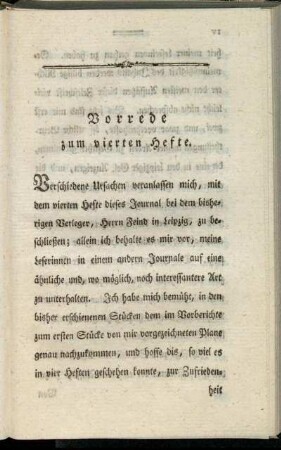 Vorrede
zum vierten Hefte.
Verschiedene Ursachen veranlassen mich, mit
dem vierten Hefte dieses Journal, bei dem bishe-
rigen Verleger, Herrn Feind in Leipzig, zu be-
schließen; allein ich behalte es mir vor, meine
Leserinnen in einem andern Journale auf eine
ähnliche und, wo möglich, noch interessantere Art
zu unterhalten. Ich habe mich bemüht, in den
bisher erschienenen Stücken dem im Vorberichte
zum ersten Stücke von mir vorgezeichneten Plane
genau nachzukommen, und hoffe dis, so viel es
in vier Heften geschehen konnte, zur Zufrieden-
heit